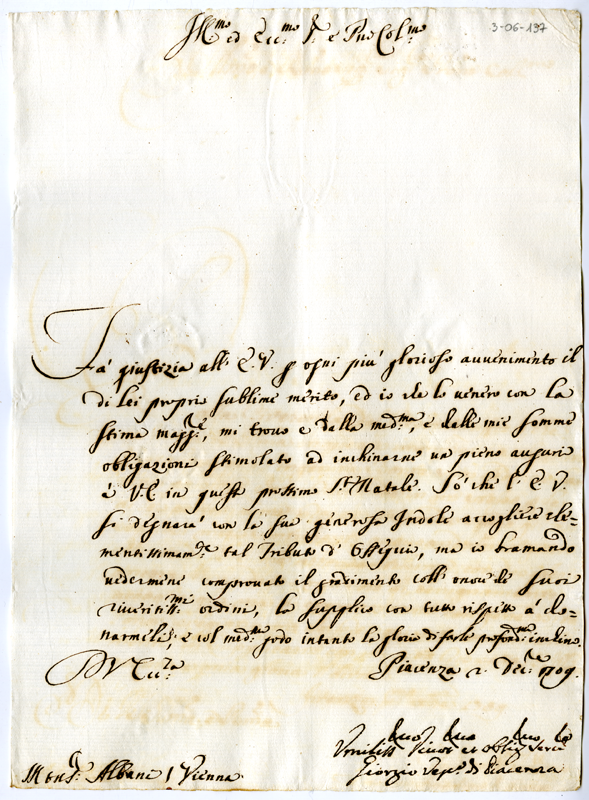 3-06-197
Ill.mo ed Ecc.mo S.r e Pne Col.mo
Fà giustizia all' E. V. p ogni più glorioso avvenimento il
di Lei proprio sublime merito, ed io che lo venero con la
stima magg.re, mi trovo e dalla med.ma, e dalle mie somme
obligazioni stimolato ad inchinarne un pieno augurio
à V. E. in questo prossimo S.to Natale. Sò che l' E. V.
si degnarà con la sua generosa Indole accogliere cle=
mentissimam.te tal Tributo d' Ossequio, ma io bramando
vedermene comprovato il gradimento coll' onore de' suoi
riveritiss.mi ordini, la supplico con tutto rispetto à do=
narmeli; e col med.mo godo intanto la gloria di farle profond.mo inchino.
D V. Ecc.za
Piacenza 2. Dec.re 1709.
Umiliss. Divot. et Oblig. Serv.
Giorgio Vesc.o di Piacenza
Mons.r Albani / Vienna